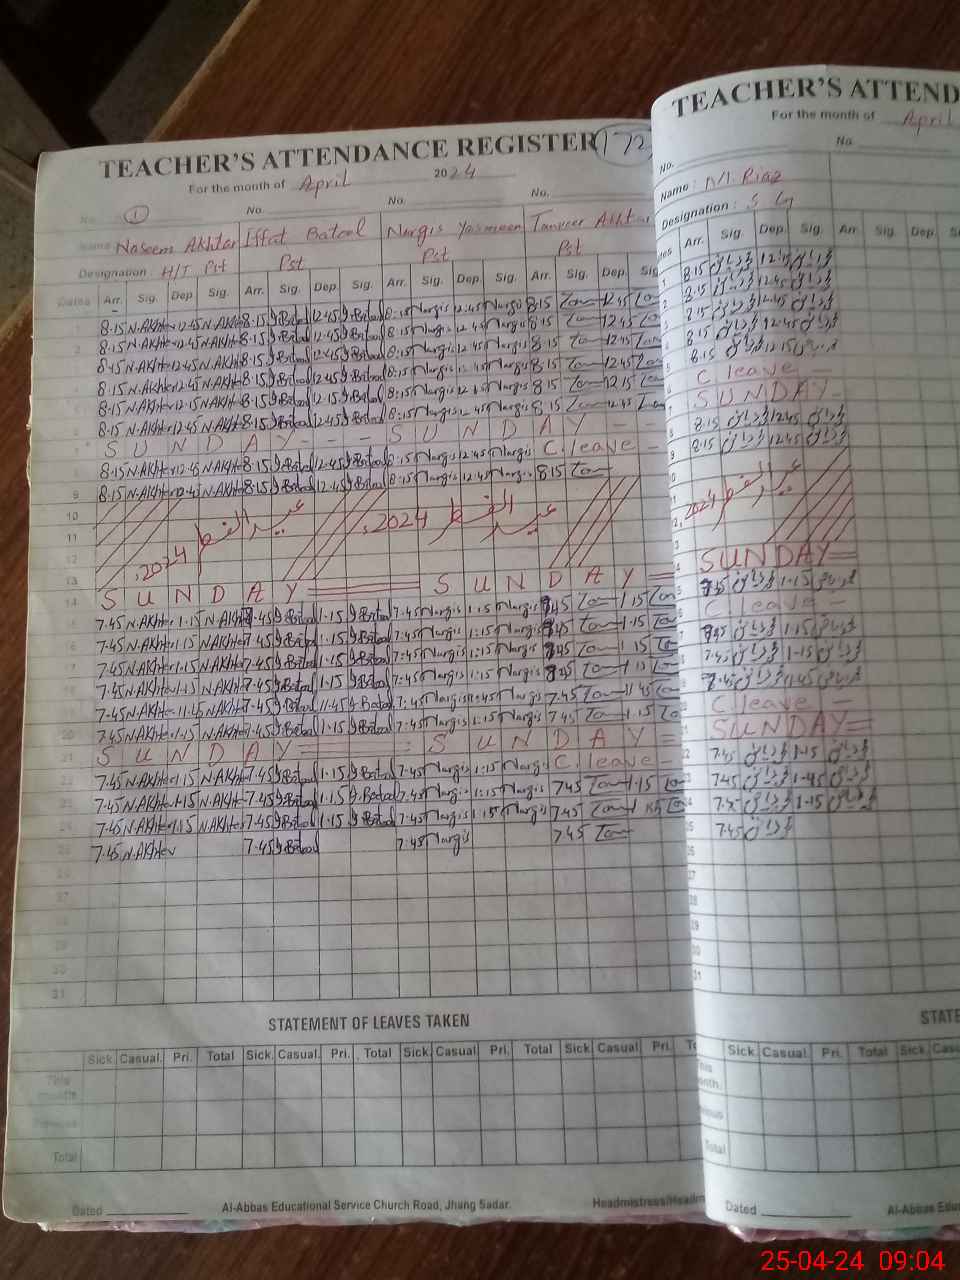 TEACHER'S ATTENDANCE REGISTER 172
For the month of April 2024
No. 1 No. No. No.
Name Naseem Akhtar Iffat Batool Nargis Yasmeen Tanveer Akhtar
Designation : H/T Pst Pst Pst Pst
Dates Arr. Sig. Dep. Sig. Arr. Sig. Dep. Sig. Arr. Sig. Dep. Sig. Arr. Sig. Dep. Sig.
8.15 N.AKhter 12.45 N.AKhter 8.15 I.Batool 12.45 I.Batool 8.15 Nargis 12.45 Nargis 8.15 12.45
8.15 N.AKhter 12.45 N.AKhter 8.15 I.Batool 12.45 I.Batool 8.15 Nargis 12.45 Nargis 8.15 12.45
8.15 N.AKhter 12.45 N.AKhter 8.15 I.Batool 12.45 I.Batool 8.15 Nargis 12.45 Nargis 8.15 12.45
8.15 N.AKhter 12.45 N.AKhter 8.15 I.Batool 12.45 I.Batool 8.15 Nargis 12.45 Nargis 8.15 12.45
8.15 N.AKhter 12.15 N.AKhter 8.15 I.Batool 12.15 I.Batool 8.15 Nargis Nargis 8.15 12.15
8.15 N.AKhter 12.45 N.AKhter 8.15 I.Batool 12.45 I.Batool 8.15 Nargis 12.45 Nargis 8.15 12.45
SUNDAY - - - SUNDAY -
8.15 N.AKhter 12.45 N.AKhter 8.15 I.Batool 12.45 I.Batool 8.15 Nargis 12.45 Nargis C. leave -
9 8.15 N.AKhter 12.45 N.AKhter 8.15 I.Batool 12.45 I.Batool 8.15 Nargis 12.45 Nargis 8.15
10
11 عید الفطر 2024 عید الفطر 2024
12
13 SUNDAY SUNDAY
14
7.45 N.AKhter 1.15 N.AKhter 7.45 I.Batool 1.15 I.Batool 7.45 Nargis 1.15 Nargis 7.45 1.15
7.45 N.AKhter 1.15 N.AKhter 7.45 I.Batool 1.15 I.Batool 7.45 Nargis 1.15 Nargis 7.45 1.15
7.45 N.AKhter 1.15 N.AKhter 7.45 I.Batool 1.15 I.Batool 7.45 Nargis 1.15 Nargis 7.45 1.15
7.45 N.AKhter 1.15 N.AKhter 7.45 I.Batool 1.15 I.Batool 7.45 Nargis 1.15 Nargis 1.15
7.45 N.AKhter 11.45 N.AKhter 7.45 I.Batool 11.45 I.Batool 7.45 Nargis 11.45 Nargis 7.45 11.45
20 7.45 N.AKhter 1.15 N.AKhter 7.45 I.Batool 1.15 I.Batool 7.45 Nargis 1.15 Nargis 7.45 1.15
SUNDAY SUNDAY
7.45 N.AKhter 1.15 N.AKhter 7.45 I.Batool 1.15 I.Batool 7.45 Nargis 1.15 Nargis C. leave -
7.45 N.AKhter 1.15 N.AKhter 7.45 I.Batool 1.15 I.Batool 7.45 Nargis 1.15 Nargis 7.45 1.15
7.45 N.AKhter 1.15 N.AKhter 7.45 I.Batool 1.15 I.Batool 7.45 Nargis 1.15 Nargis 7.45
7.45 N.AKhter 7.45 I.Batool 7.45 Nargis 7.45
26
27
28
29
30
31
STATEMENT OF LEAVES TAKEN
Sick. Casual. Pri. Total Sick. Casual. Pri. Total Sick. Casual. Pri. Total Sick. Casual. Pri.
This month
Previous
Total
Dated Al-Abbas Educational Service Church Road, Jhang Sadar. Headmistress/Headm
TEACHER'S ATTEND
For the month of April
No. No.
Name : M. Riaz
Designation :
Arr. Sig. Dep. Sig. Arr. Sig. Dep.
8.15 12.15
8.15 12.45
8.15 12.45
8.15 12.45
8.15 12.15
C. leave -
SUNDAY -
8.15 12.45
8.15 12.45
عید الفطر 2024
SUNDAY
7.45 1.15
C. leave -
7.45 1.15
7.45 1.15
7.45 11.45
C. leave -
SUNDAY
7.45 1.15
7.45
7.45 1.15
7.45
STATE
Sick. Casual. Pri. Total Sick. Casu
This month.
Previous
Total
Dated Al-Abbas Educ
25-04-24 09:04